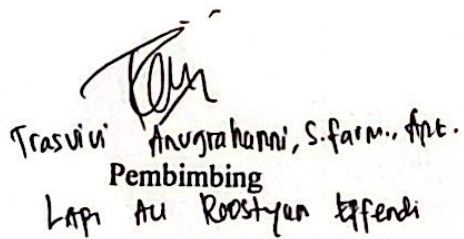 Trasvivi Anugrahanni, S.farm., Apt.
Pembimbing
Lapi Ali Roostyan Effendi